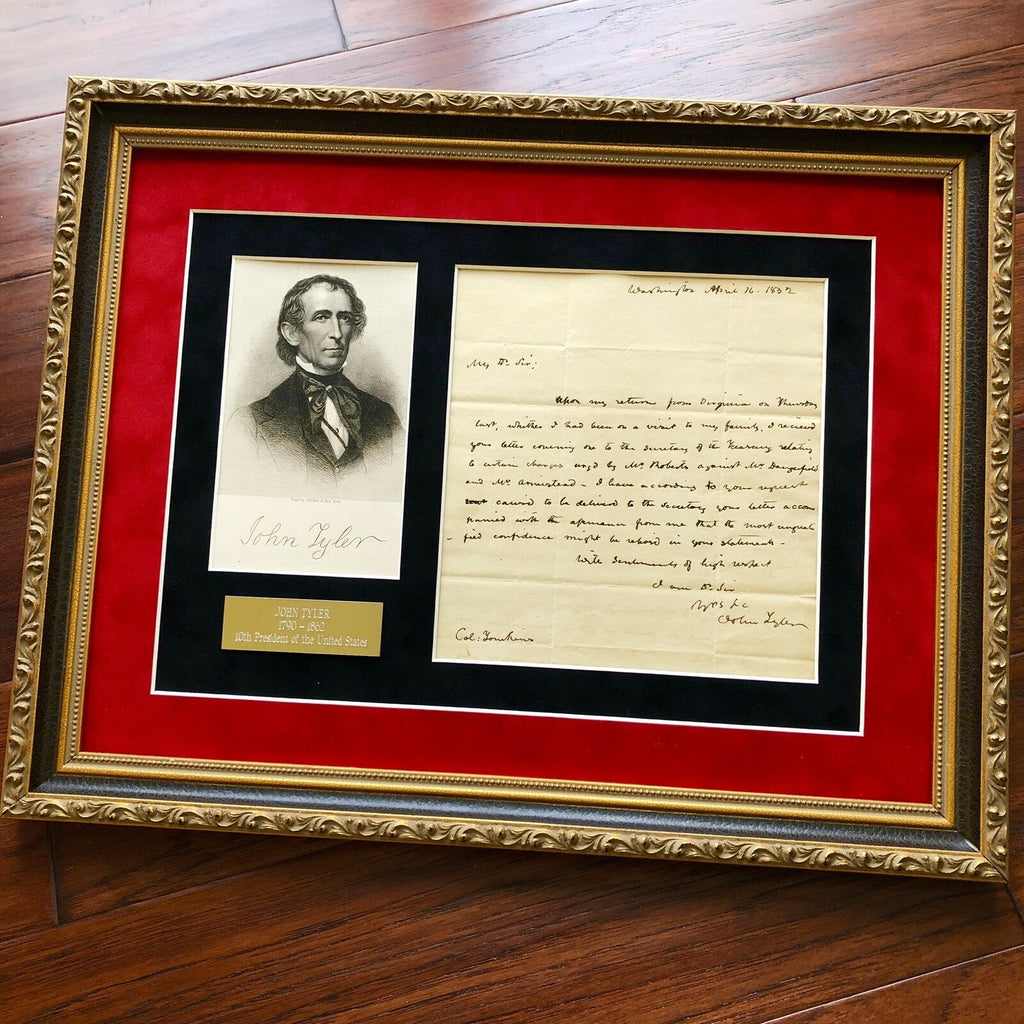 John Tyler
JOHN TYLER
1790 - 1862
10th President of the United States
Washington April 16. 1832
My Dr Sir;
Upon my return from Virginia on Thursday
last, whither I had been on a visit to my family, I received
your letter covering one to the Secretary of the Treasury relating
to certain charges urg'd by Mr Roberts against Mr Dangerfield
and Mr Armistead - I have according to your request
caused to be delivered to the Secretary your letter accom
panied with the assurance from me that the most unquali
fied confidence might be repos'd in your statements -
With sentiments of high respect
I am Dr Sir
Yrs &c
John Tyler
Col: Tomkins